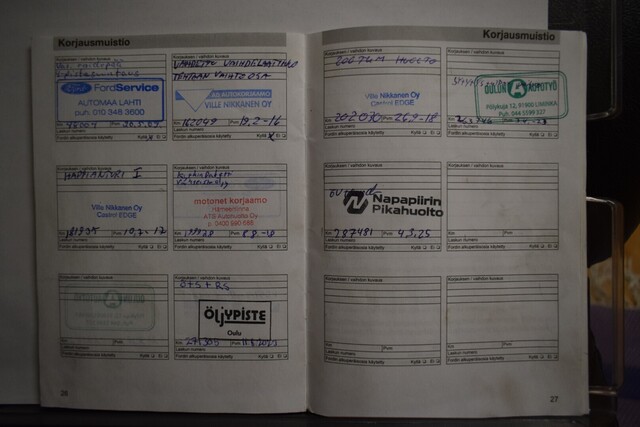 Korjausmuistio
Korjauksen / vaihdon kuvaus
FordService
AUTOMAA LAHTI
puh. 010 348 3600
Km
Pvm
Laskun numero
Fordin alkuperäisosia käytetty Kyllä Ei
Korjauksen / vaihdon kuvaus
VAIHDETTU VAIHDELAATIKKO
TEHTAAN VAIHTO OSA
AD AUTOKORJAAMO
VILLE NIKKANEN OY
Km 162049 Pvm 19.2-16
Laskun numero
Fordin alkuperäisosia käytetty Kyllä X Ei
Korjauksen / vaihdon kuvaus
HAPPIANTURI I
Ville Nikkanen Oy
Castrol EDGE
Km Pvm 10.7-17
Laskun numero
Fordin alkuperäisosia käytetty Kyllä Ei
Korjauksen / vaihdon kuvaus
motonet korjaamo
Hämeenlinna
ATS Autohuolto Oy
Km Pvm
Laskun numero
Fordin alkuperäisosia käytetty Kyllä Ei
Korjauksen / vaihdon kuvaus
Km Pvm
Laskun numero
Fordin alkuperäisosia käytetty Kyllä Ei
Korjauksen / vaihdon kuvaus
Ö+S+RS
ÖLJYPISTE
Oulu
Km 271303 Pvm
Laskun numero
Fordin alkuperäisosia käytetty Kyllä Ei
26
Korjausmuistio
Korjauksen / vaihdon kuvaus
200 TKM HUOLTO
Ville Nikkanen Oy
Castrol EDGE
Km 202030 Pvm 26.9-18
Laskun numero
Fordin alkuperäisosia käytetty Kyllä Ei
Korjauksen / vaihdon kuvaus
AUTOTYÖ
Pöllykuja 12, 91900 LIMINKA
Puh. 044 3599 327
Km Pvm
Laskun numero
Fordin alkuperäisosia käytetty Kyllä Ei
Korjauksen / vaihdon kuvaus
Napapiirin
Pikahuolto
Km 287481 Pvm 4.3.25
Laskun numero
Fordin alkuperäisosia käytetty Kyllä Ei
Korjauksen / vaihdon kuvaus
Km Pvm
Laskun numero
Fordin alkuperäisosia käytetty Kyllä Ei
Korjauksen / vaihdon kuvaus
Km Pvm
Laskun numero
Fordin alkuperäisosia käytetty Kyllä Ei
Korjauksen / vaihdon kuvaus
Km Pvm
Laskun numero
Fordin alkuperäisosia käytetty Kyllä Ei
27